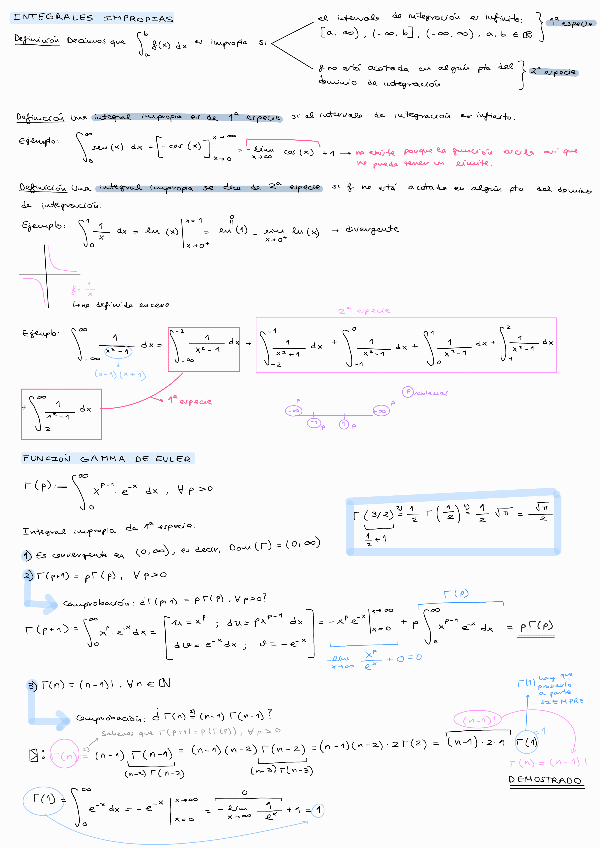 INTEGRALES IMPROPIAS
Definición Decimos que ∫_a^b f(x) dx es impropia si
el intervalo de integración es infinito:
[a, ∞), (-∞, b], (-∞, ∞), a, b ∈ ℝ } 1ª especie
f no está acotada en algún pto del
dominio de integración } 2ª especie
Definición Una integral impropia es de 1ª especie si el intervalo de integración es infinito.
Ejemplo: ∫_0^∞ sen(x) dx = [-cos(x)]_{x→0}^{x→∞} = -lim_{x→∞} cos(x) + 1 → no existe porque la función oscila así que
no puede tener un límite.
Definición Una integral impropia se dice de 2ª especie si f no está acotada en algún pto del dominio
de integración.
Ejemplo: ∫_0^1 1/x dx = ln(x) |_{x→0⁺}^{x=1} = ln(1) - lim_{x→0⁺} ln(x) → divergente
0
f = 1/x
no definida en cero
2ª especie
Ejemplo: ∫_{-∞}^∞ 1/(x²-1) dx = ∫_{-∞}^{-2} 1/(x²-1) dx + ∫_{-2}^{-1} 1/(x²-1) dx + ∫_{-1}^0 1/(x²-1) dx + ∫_0^1 1/(x²-1) dx + ∫_1^2 1/(x²-1) dx
(x-1)(x+1)
+ ∫_2^∞ 1/(x²-1) dx
1ª especie
Problemas
-∞ P -1 P 1 P +∞ P
FUNCIÓN GAMMA DE EULER
Γ(p) = ∫_0^∞ x^{p-1} e^{-x} dx, ∀ p > 0
Γ(3/2) =²⁾ 1/2 Γ(1/2) = 1/2 √π = √π/2
1/2 + 1
Integral impropia de 1ª especie.
1) Es convergente en (0,∞), es decir, Dom(Γ) = (0,∞)
2) Γ(p+1) = pΓ(p), ∀ p > 0
Comprobación: ¿Γ(p+1) = pΓ(p), ∀ p > 0?
Γ(p)
Γ(p+1) = ∫_0^∞ x^p e^{-x} dx = [u = x^p ; du = px^{p-1} dx
dv = e^{-x} dx ; v = -e^{-x}] = -x^p e^{-x} |_{x=0}^{x→∞} + p ∫_0^∞ x^{p-1} e^{-x} dx = pΓ(p)
lim_{x→∞} x^p/e^x + 0 = 0
3) Γ(n) = (n-1)!, ∀ n ∈ ℕ
Γ(1) hay que
probarlo
a parte
SIEMPRE
Comprobación: ¿Γ(n) = (n-1) Γ(n-1)?
Sabemos que Γ(p+1) = pΓ(p), ∀ p > 0
(n-1)!
Γ(n) = (n-1) Γ(n-1) = (n-1)(n-2) Γ(n-2) = (n-1)(n-2)·2Γ(2) = (n-1)·2·1 Γ(1)
1
(n-2)Γ(n-2)
(n-3)Γ(n-3)
Γ(n) = (n-1)!
DEMOSTRADO
Γ(1) = ∫_0^∞ e^{-x} dx = -e^{-x} |_{x=0}^{x→∞} = -lim_{x→∞} 1/e^x + 1 = 1
0